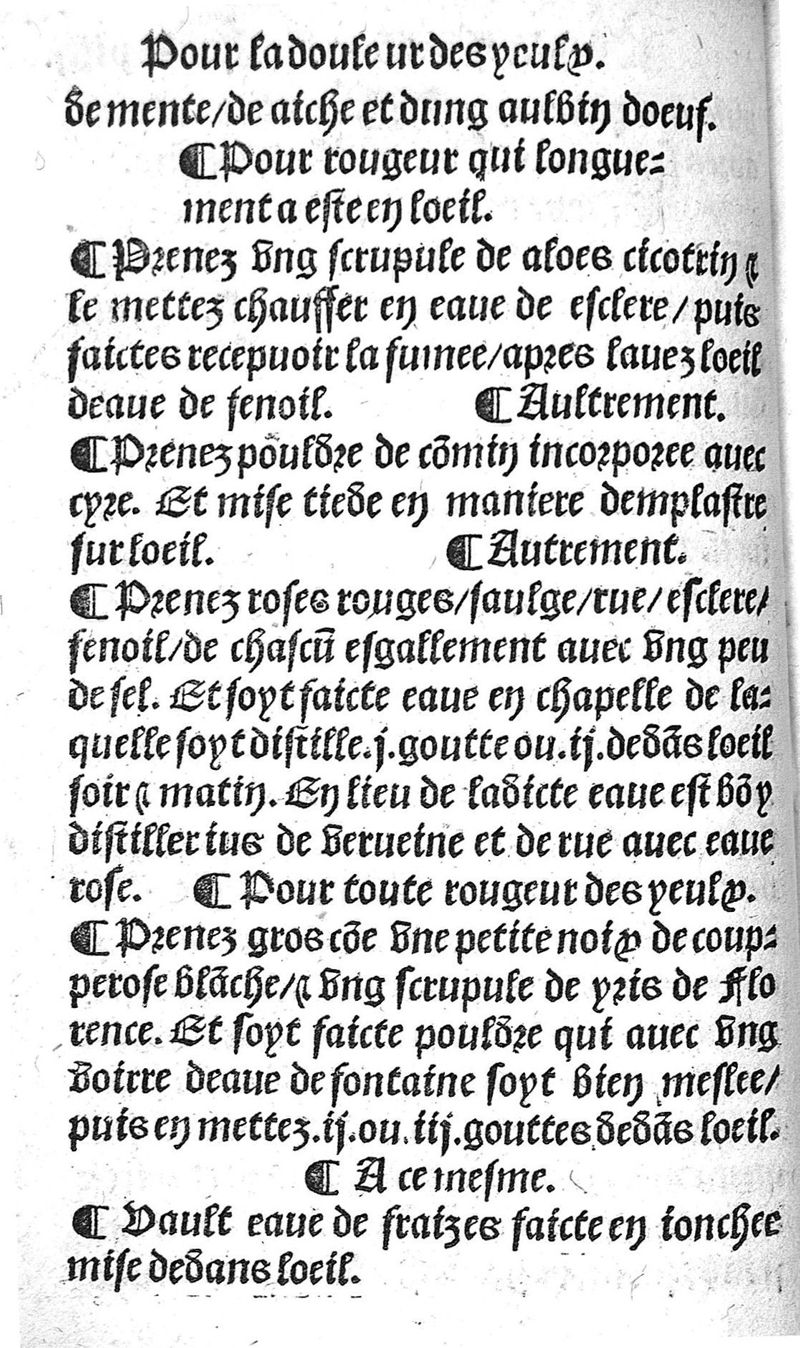 Pour la douleur des yeulx.
de mente/de aiche et dung aulbin doeuf.
¶ Pour rougeur qui longue=
ment a este en loeil.
¶ Prenez vng scrupule de aloes cicotrin ⁊
le mettez chauffer en eaue de esclere/puis
faictes recepuoir la fumee/apres lauez loeil
deaue de fenoil. ¶ Aultrement.
¶ Prenez pouldre de cōmin incorporee auec
cyre. Et mise tiede en maniere demplastre
sur loeil. ¶ Autrement.
¶ Prenez roses rouges/saulge/rue/esclere/
fenoil/de chascū esgallement auec vng peu
de sel. Et soyt faicte eaue en chapelle de la=
quelle soyt distille.j.goutte ou.ij.dedās loeil
soir ⁊ matin. En lieu de ladicte eaue est bōy
distiller ius de verueine et de rue auec eaue
rose. ¶ Pour toute rougeur des yeulx.
¶ Prenez gros cōe vne petite noix de coup=
perose blāche/⁊ vng scrupule de yris de Flo
rence. Et soyt faicte pouldre qui auec vng
voirre deaue de fontaine soyt bien meslee/
puis en mettez.ij.ou.iij.gouttes dedās loeil.
¶ A ce mesme.
¶ Vault eaue de fraizes faicte en ionchee
mise dedans loeil.